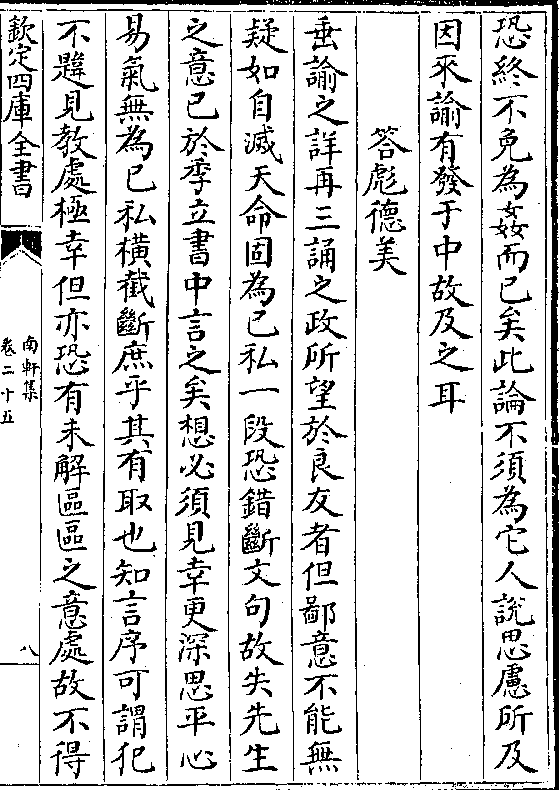 恐終不免為姦而已矣此論不須為它人說思慮所及
因來諭有發于中故及之耳
答彪德美
垂諭之詳再三誦之政所望於良友者但鄙意不能無
疑如自滅天命固為已私一段恐錯斷文句故失先生
之意已於季立書中言之矣想必須見幸更深思平心
易氣無為已私橫截斷庶乎其有取也知言序可謂犯
不韙見教處極幸但亦恐有未解區區之意處故不得
欽定四庫全書
南軒集
卷二十五
八